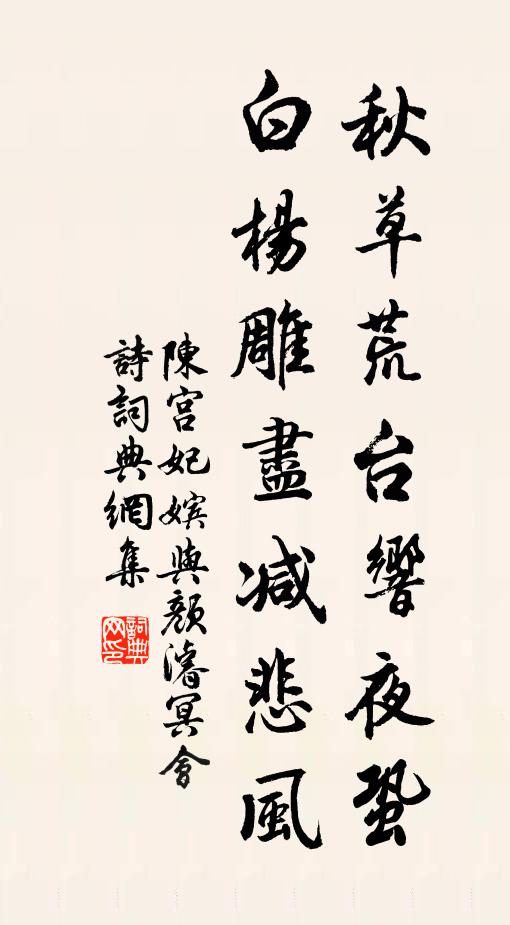 秋草荒台響夜蛩
白楊雕盡減悲風
陳宮妃嬪與顏濬冥會
詩詞典網集
詞典网印